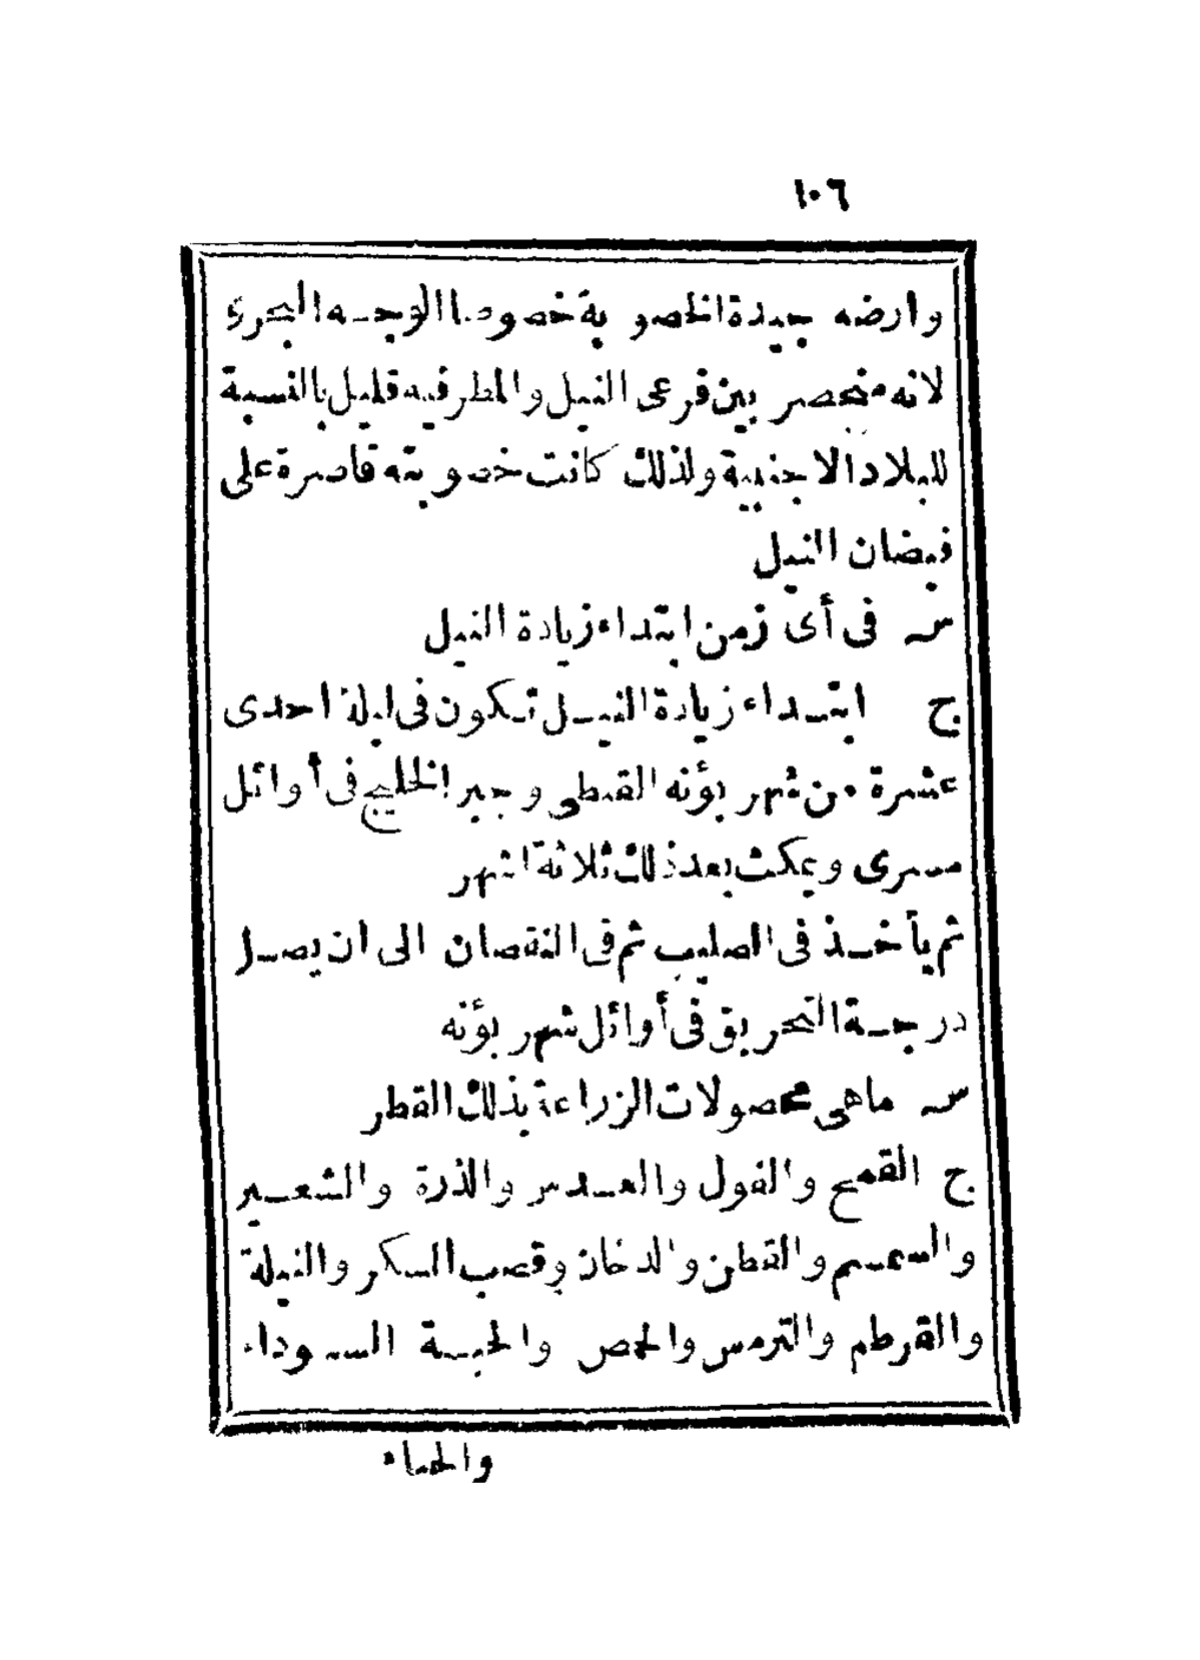 ١٠٦
وارضه جيدة الخصوبة خصوصا الوجه البحرى
لانه منحصر بين فرعى النيل والمطر فيه قليل بالنسبة
للبلاد الاجنبية ولذلك كانت خصوبته قاصرة على
فيضان النيل
س فى أى زمن ابتداء زيادة النيل
ج ابتداء زيادة النيل تكون فى ليلة احدى
عشرة من شهر بؤنه القبطى وجبر الخليج فى أوائل
مسرى ويمكث بعد ذلك ثلاثة اشهر
ثم يأخذ فى الصليب ثم فى النقصان الى ان يصل
درجة التحريق فى أوائل شهر بؤنه
س ماهى محصولات الزراعة بذلك القطر
ج القمح والفول والعدس والذرة والشعير
والسمسم والقطن والدخان وقصب السكر والنيلة
والقرطم والترمس والحمص والحبة السوداء